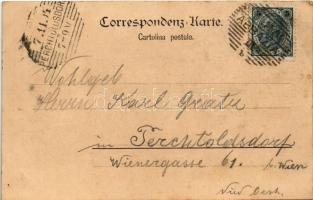 Correspondenz-Karte.
Cartolina postale.
PERCHTOLDSDORF
Wohlgeb
Herrn Karl
in Perchtoldsdorf
Wienergasse 61. b. Wien
Nied Oest.